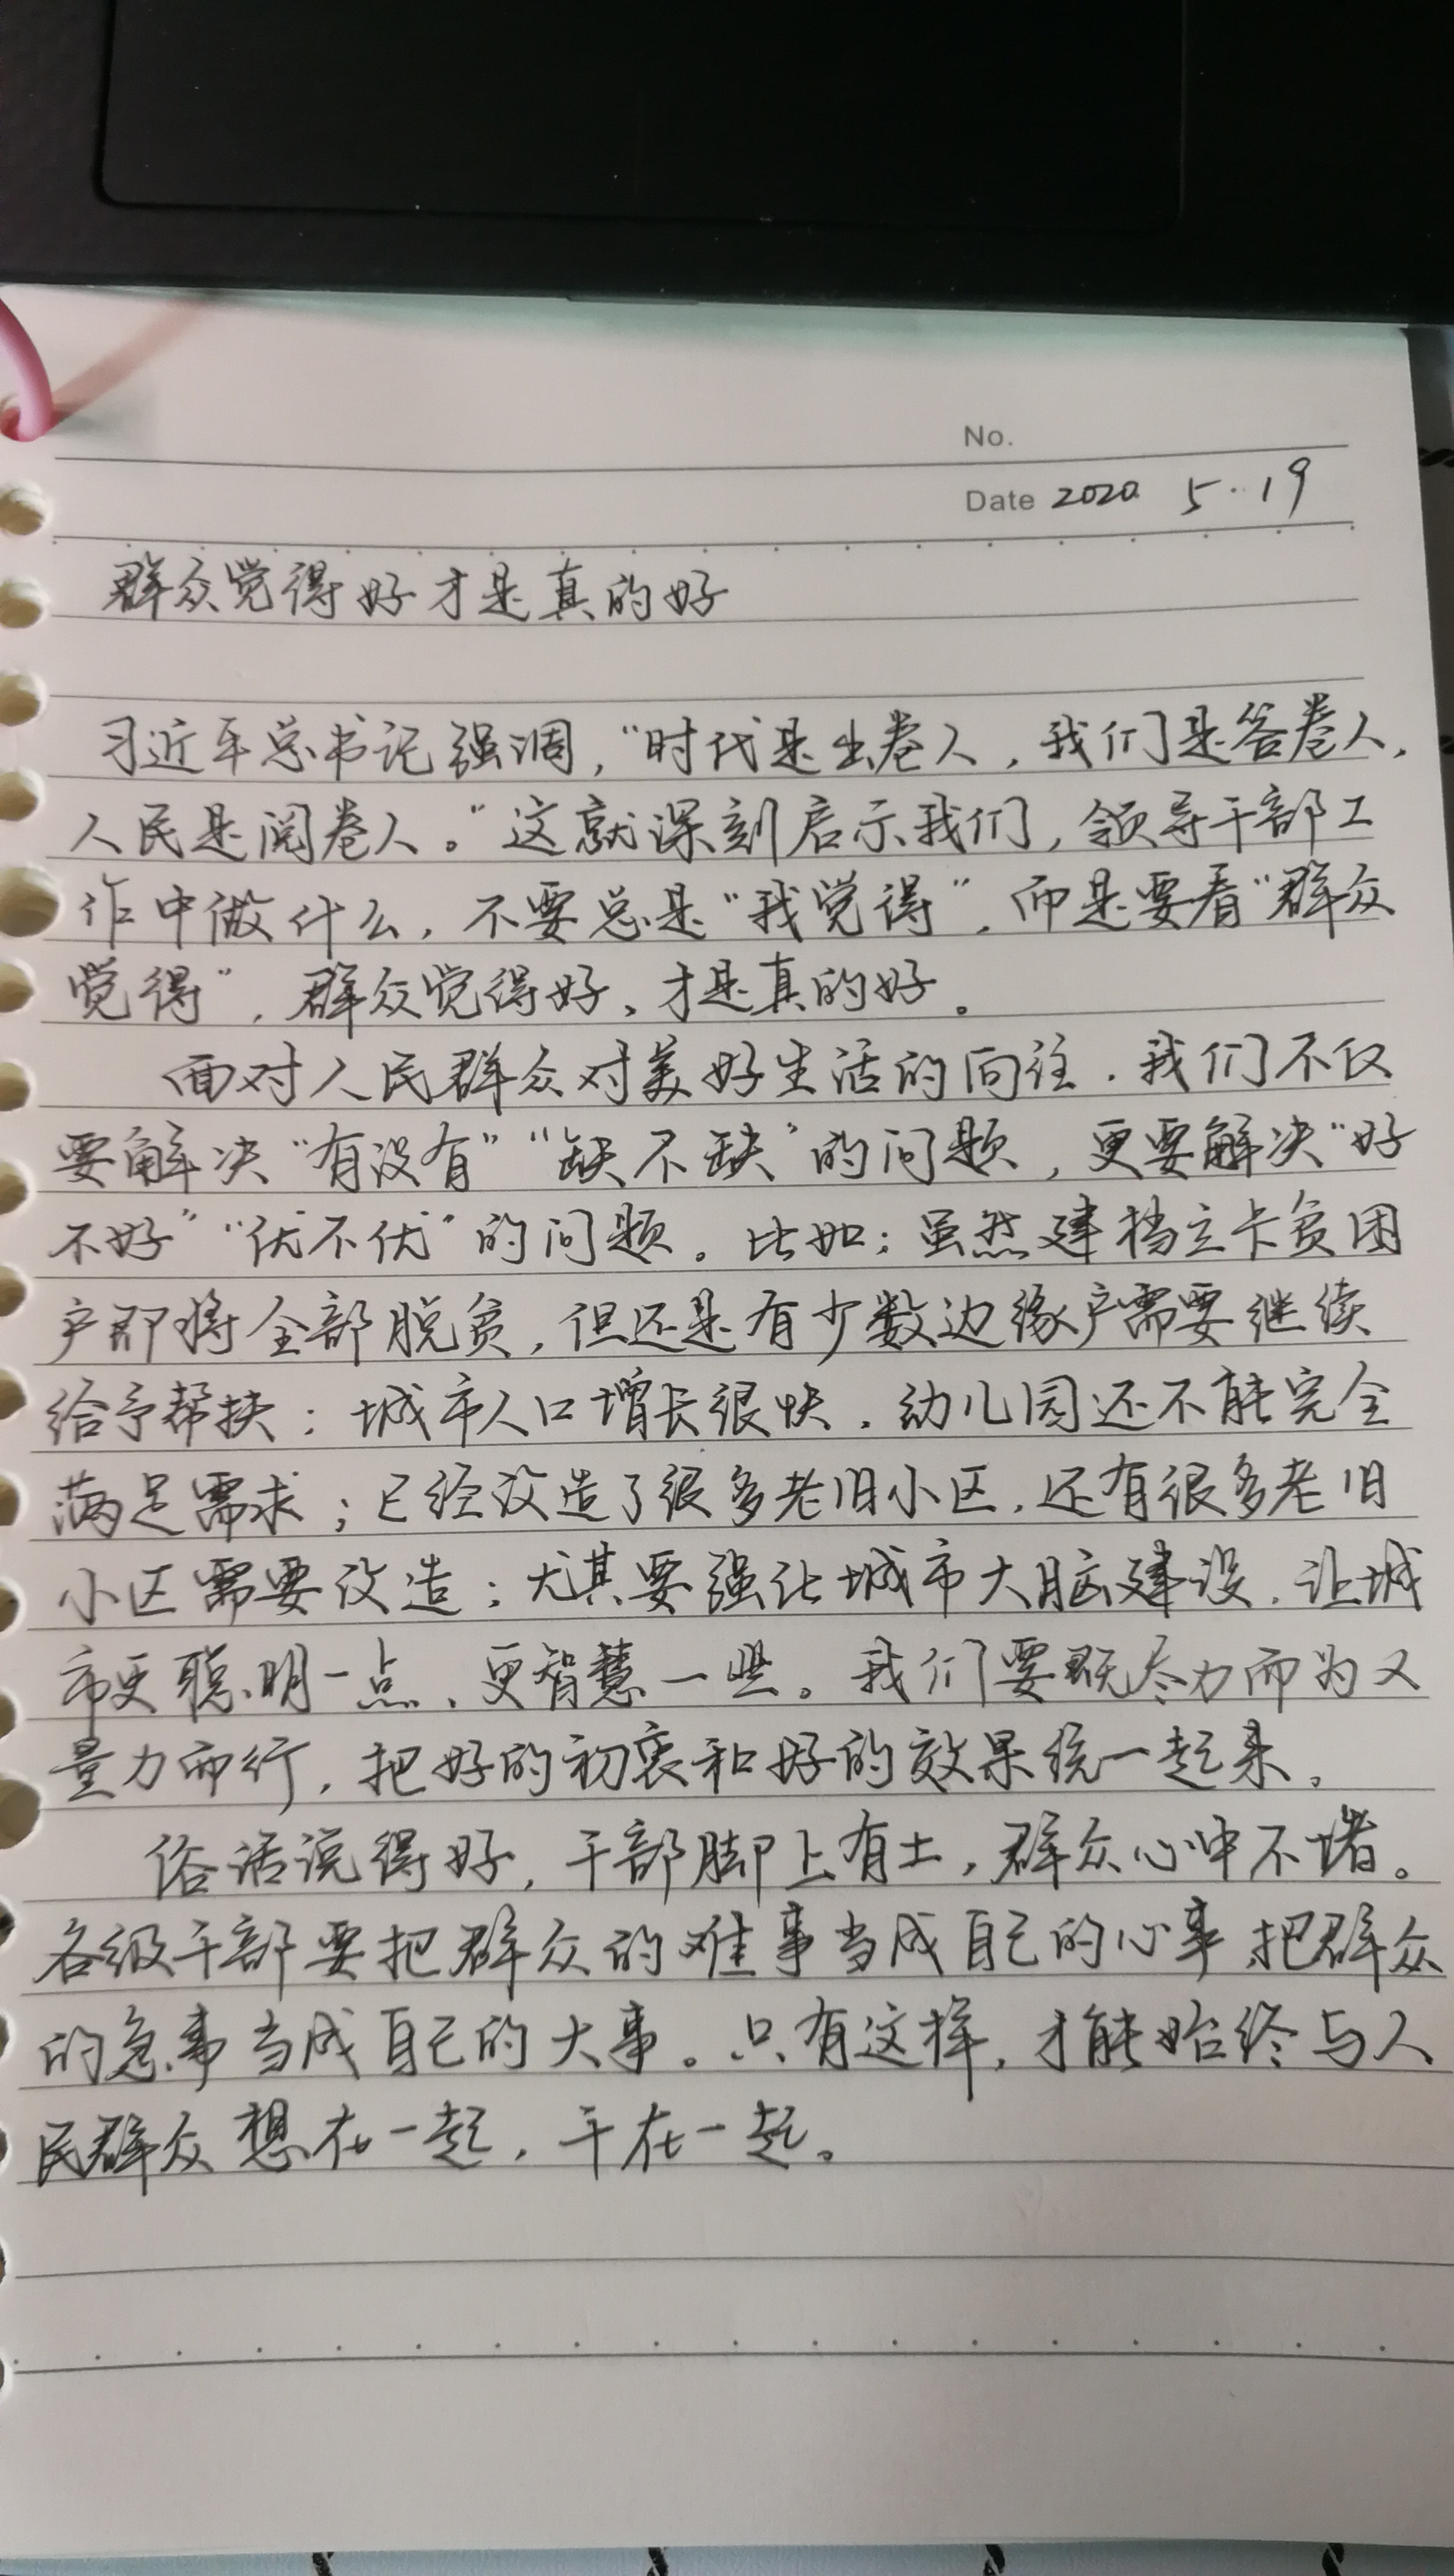 No.
Date 2020 5·19
群众觉得好才是真的好
习近平总书记强调，“时代是出卷人，我们是答卷人，
人民是阅卷人。”这就深刻启示我们，领导干部工
作中做什么，不要总是“我觉得”，而是要看“群众
觉得”，群众觉得好，才是真的好。
面对人民群众对美好生活的向往，我们不仅
要解决“有没有”“缺不缺”的问题，更要解决“好
不好”“优不优”的问题。比如：虽然建档立卡贫困
户即将全部脱贫，但还是有少数边缘户需要继续
给予帮扶；城市人口增长很快，幼儿园还不能完全
满足需求；已经改造了很多老旧小区，还有很多老旧
小区需要改造；尤其要强化城市大脑建设，让城
市更聪明一点、更智慧一些。我们要既尽力而为又
量力而行，把好的初衷和好的效果统一起来。
俗话说得好，干部脚上有土，群众心中不堵。
各级干部要把群众的难事当成自己的心事，把群众
的急事当成自己的大事。只有这样，才能始终与人
民群众想在一起，干在一起。